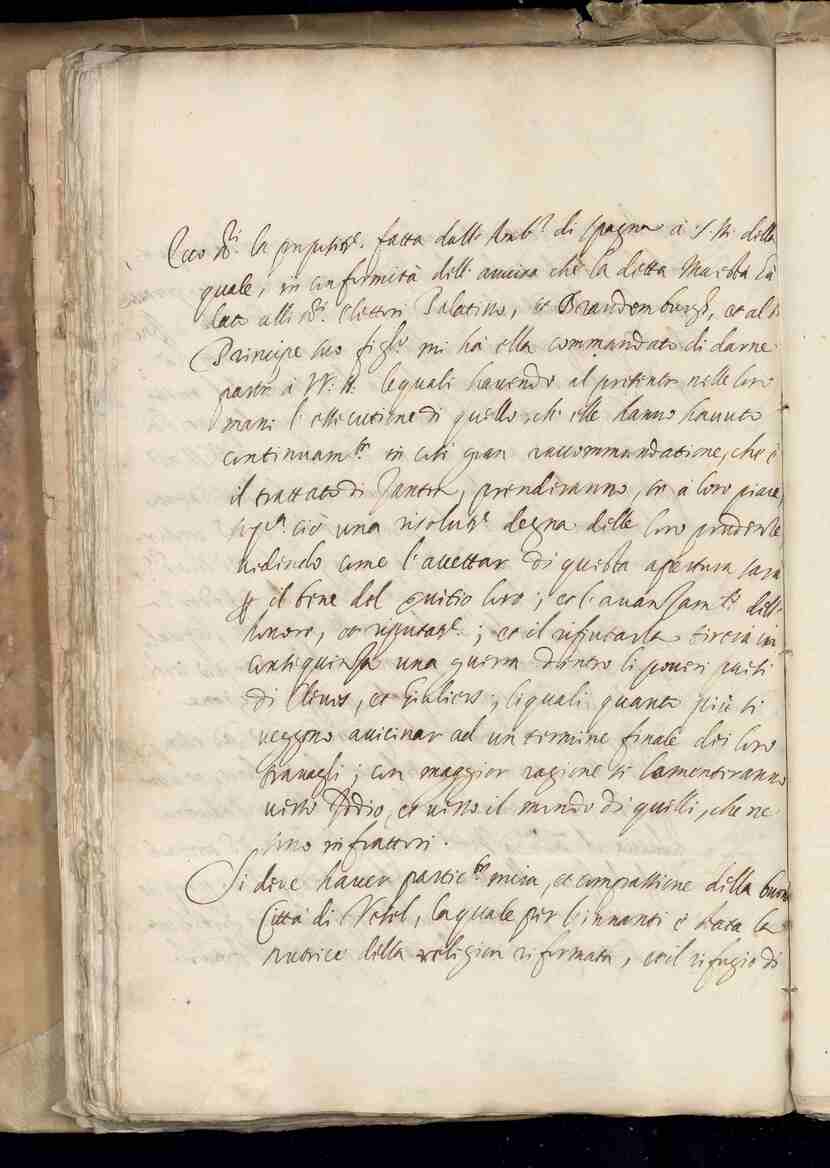 Ecco SS.ri la propositi.e fatta dall' Amb.r di Spagna à S. M. della
quale, in conformità dell' avviso che la detta Maestà hà
dato alli SS.ri Elettori Palatino, et Brandemburgh, et al S.
Principe suo figl.o mi hà ella commandato di darne
parte à VV. SS. lequali havendo al presente nelle loro
mani l' essecutione di quello, che elle hanno havuto
continuam.te in così gran raccommandatione, che è
il trattato di Santen, prenderanno, se à loro piace,
sop.a ciò una risolut.e degna delle loro prudenze
vedendo come l' accettar di questa apertura sarà
il bene del servitio loro; et l' avanzam.to dell'
honore, et riputat.e; et il rifiutarla tirerà in
consequenza una guerra dentro li poveri paesi
di Cleves, et Giuliers; liquali quanto più si
veggono avicinar ad un termine finale dei loro
travagli; con maggior ragione si lamenteranno
verso Iddio, et verso il mondo di quelli, che ne
sono infrattori.
Si deve haver partic.re mira, et compassione della buona
Città di Vesel, laquale per l' innanti è stata la
nutrice della religion riformata, et il rifugio di